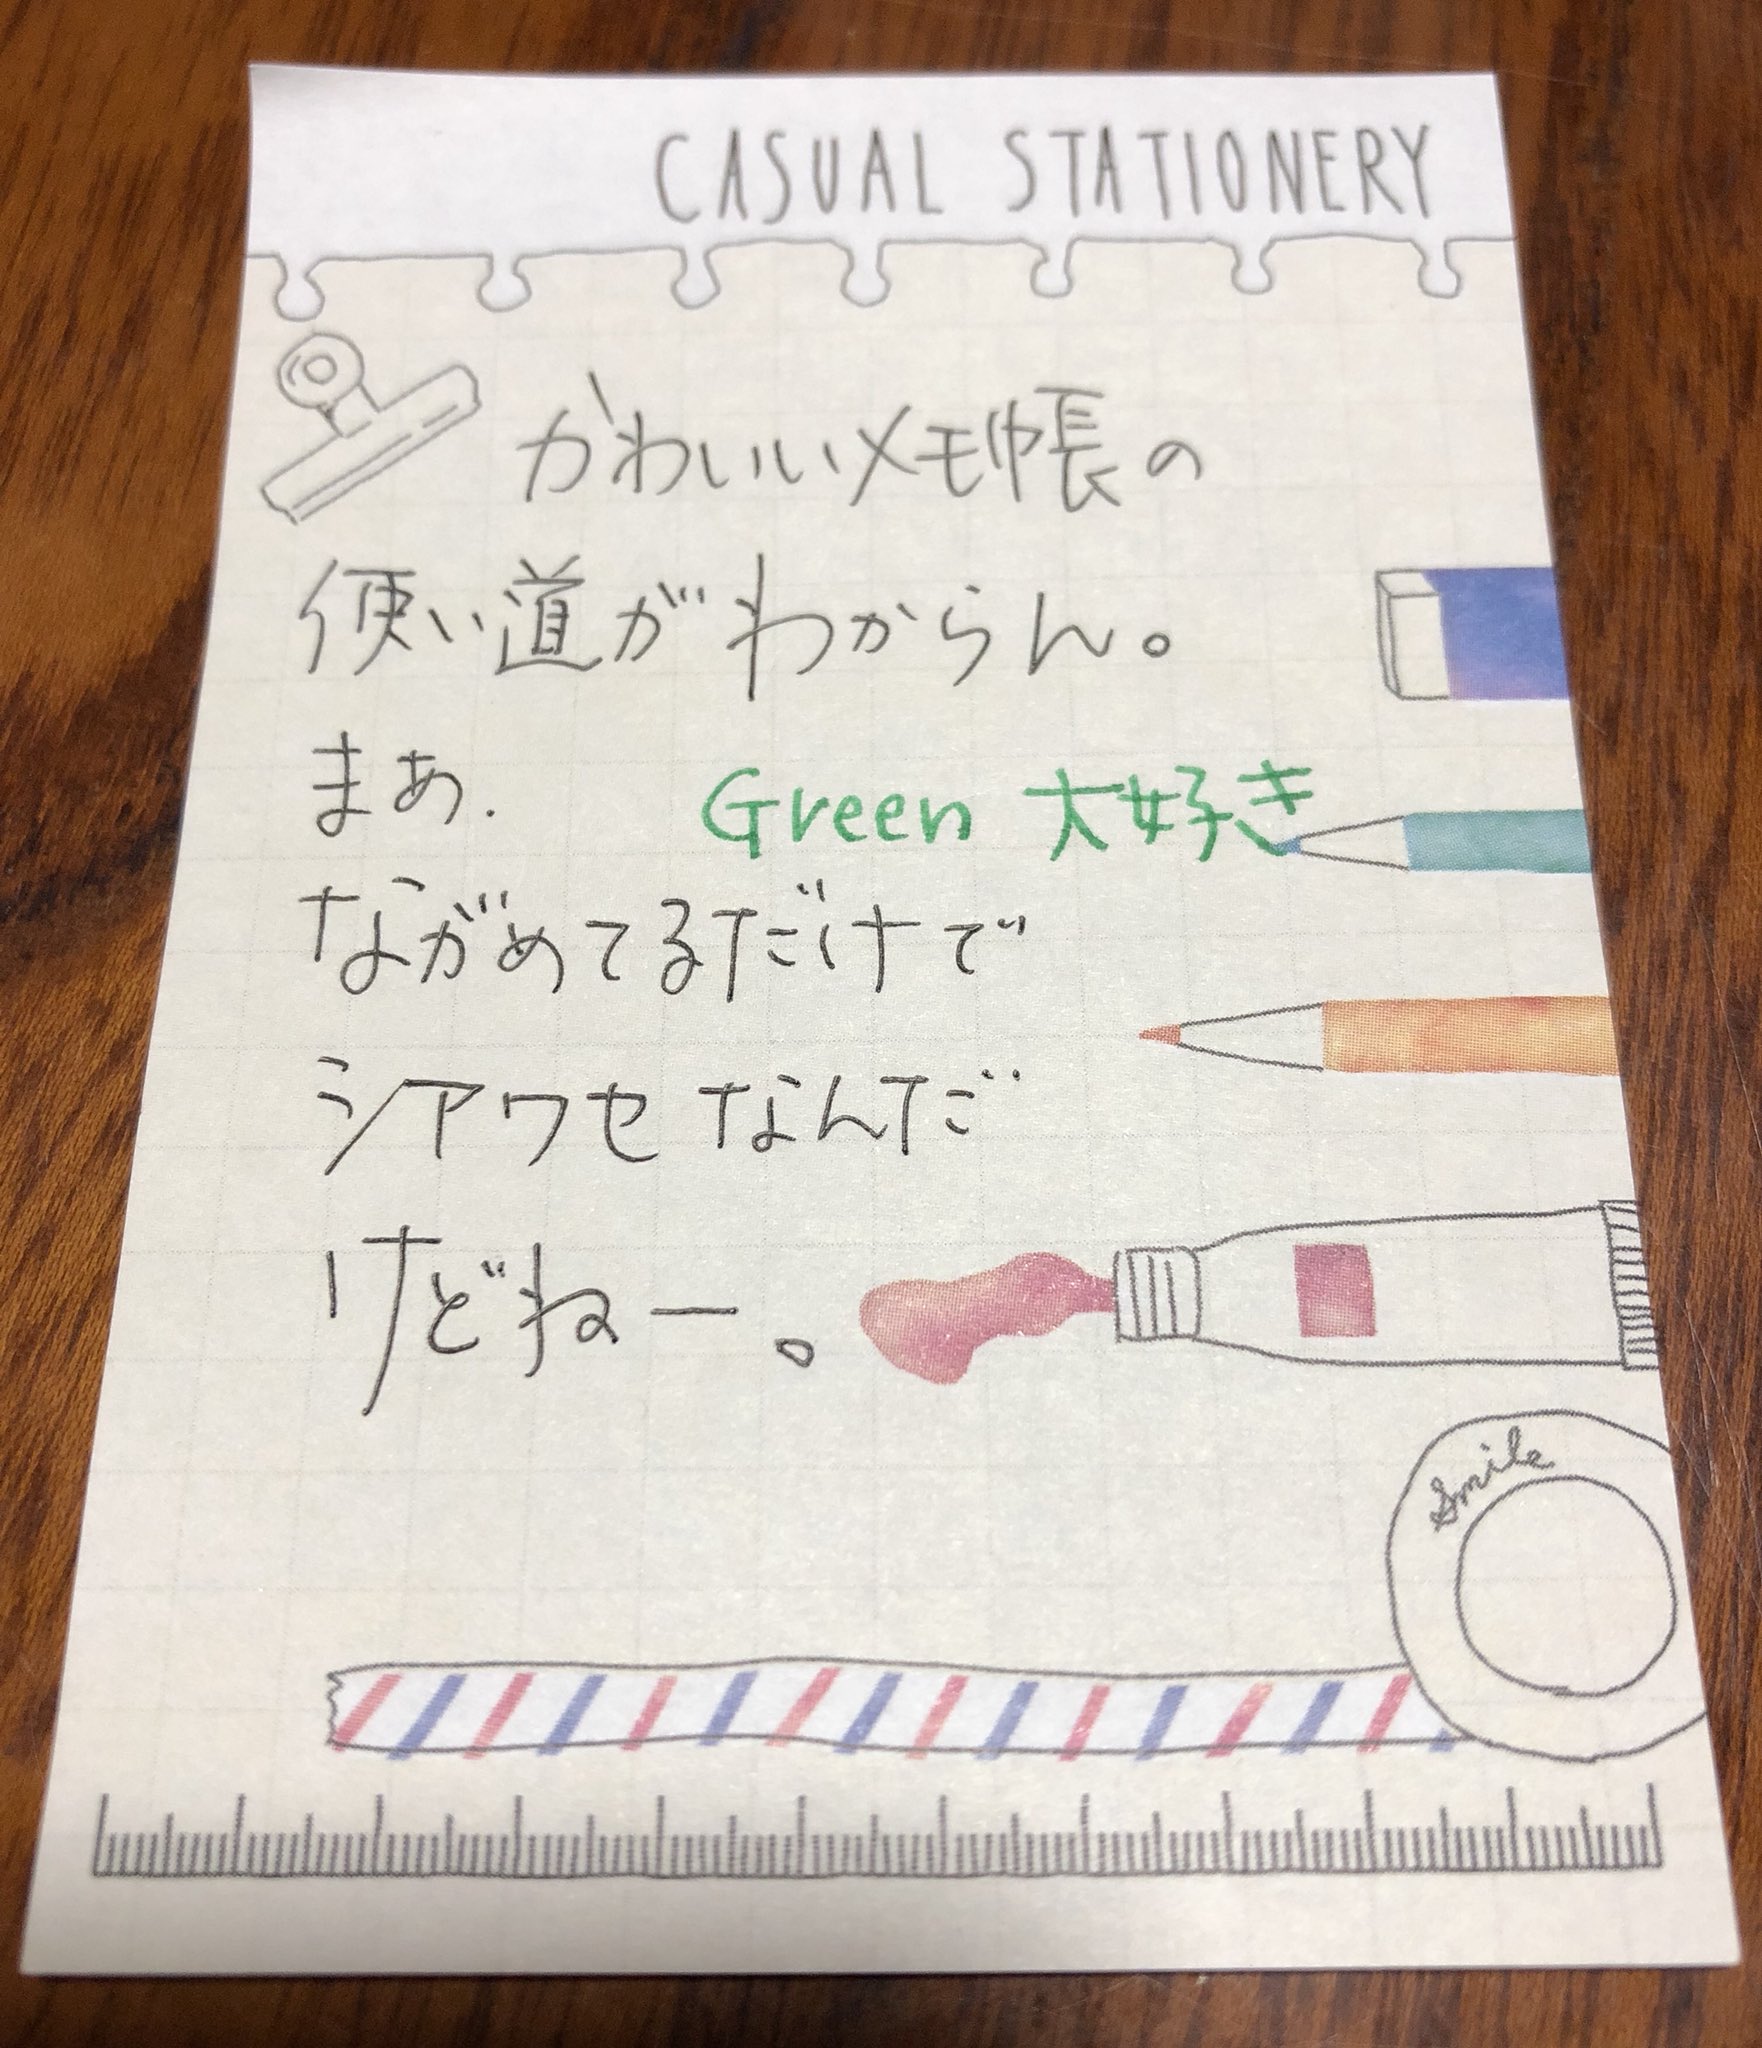 CASUAL STATIONERY
かわいいメモ帳の
使い道がわからん。
まぁ.
Green 大好き
ながめてるだけで
シアワセなんだ
けどねー。
Smile